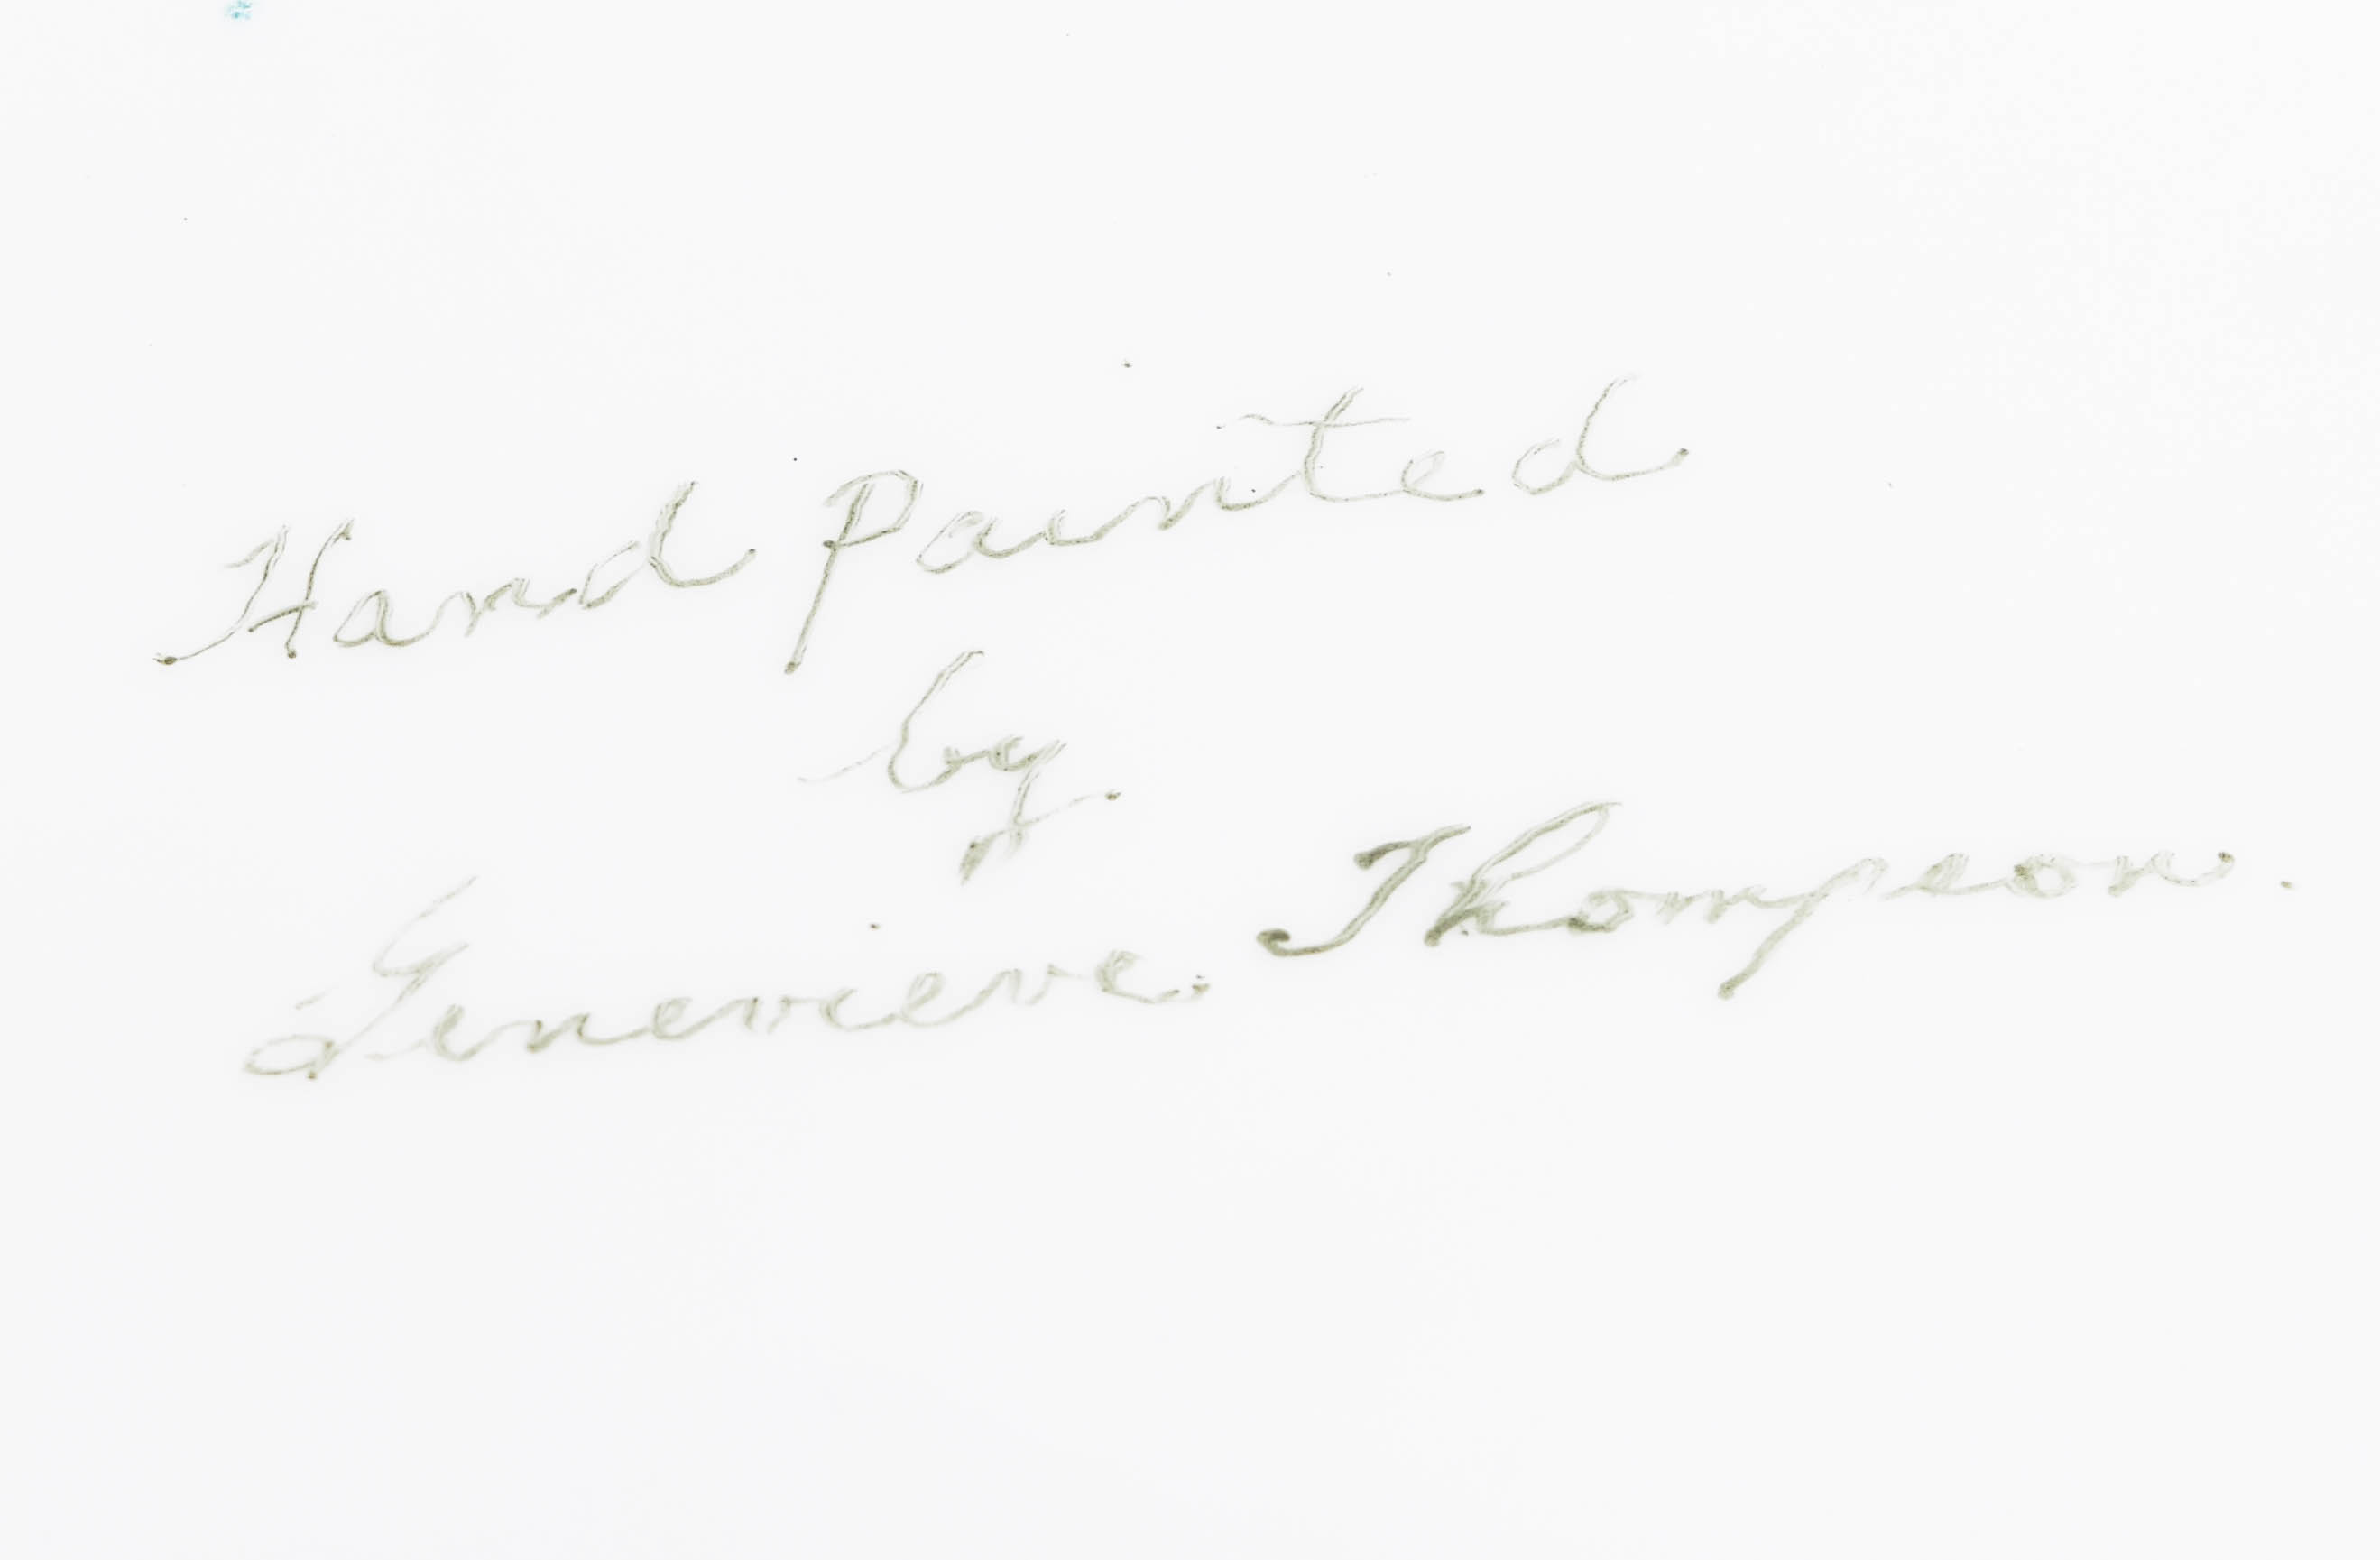 Hand Painted
by
Genevieve Thompson.